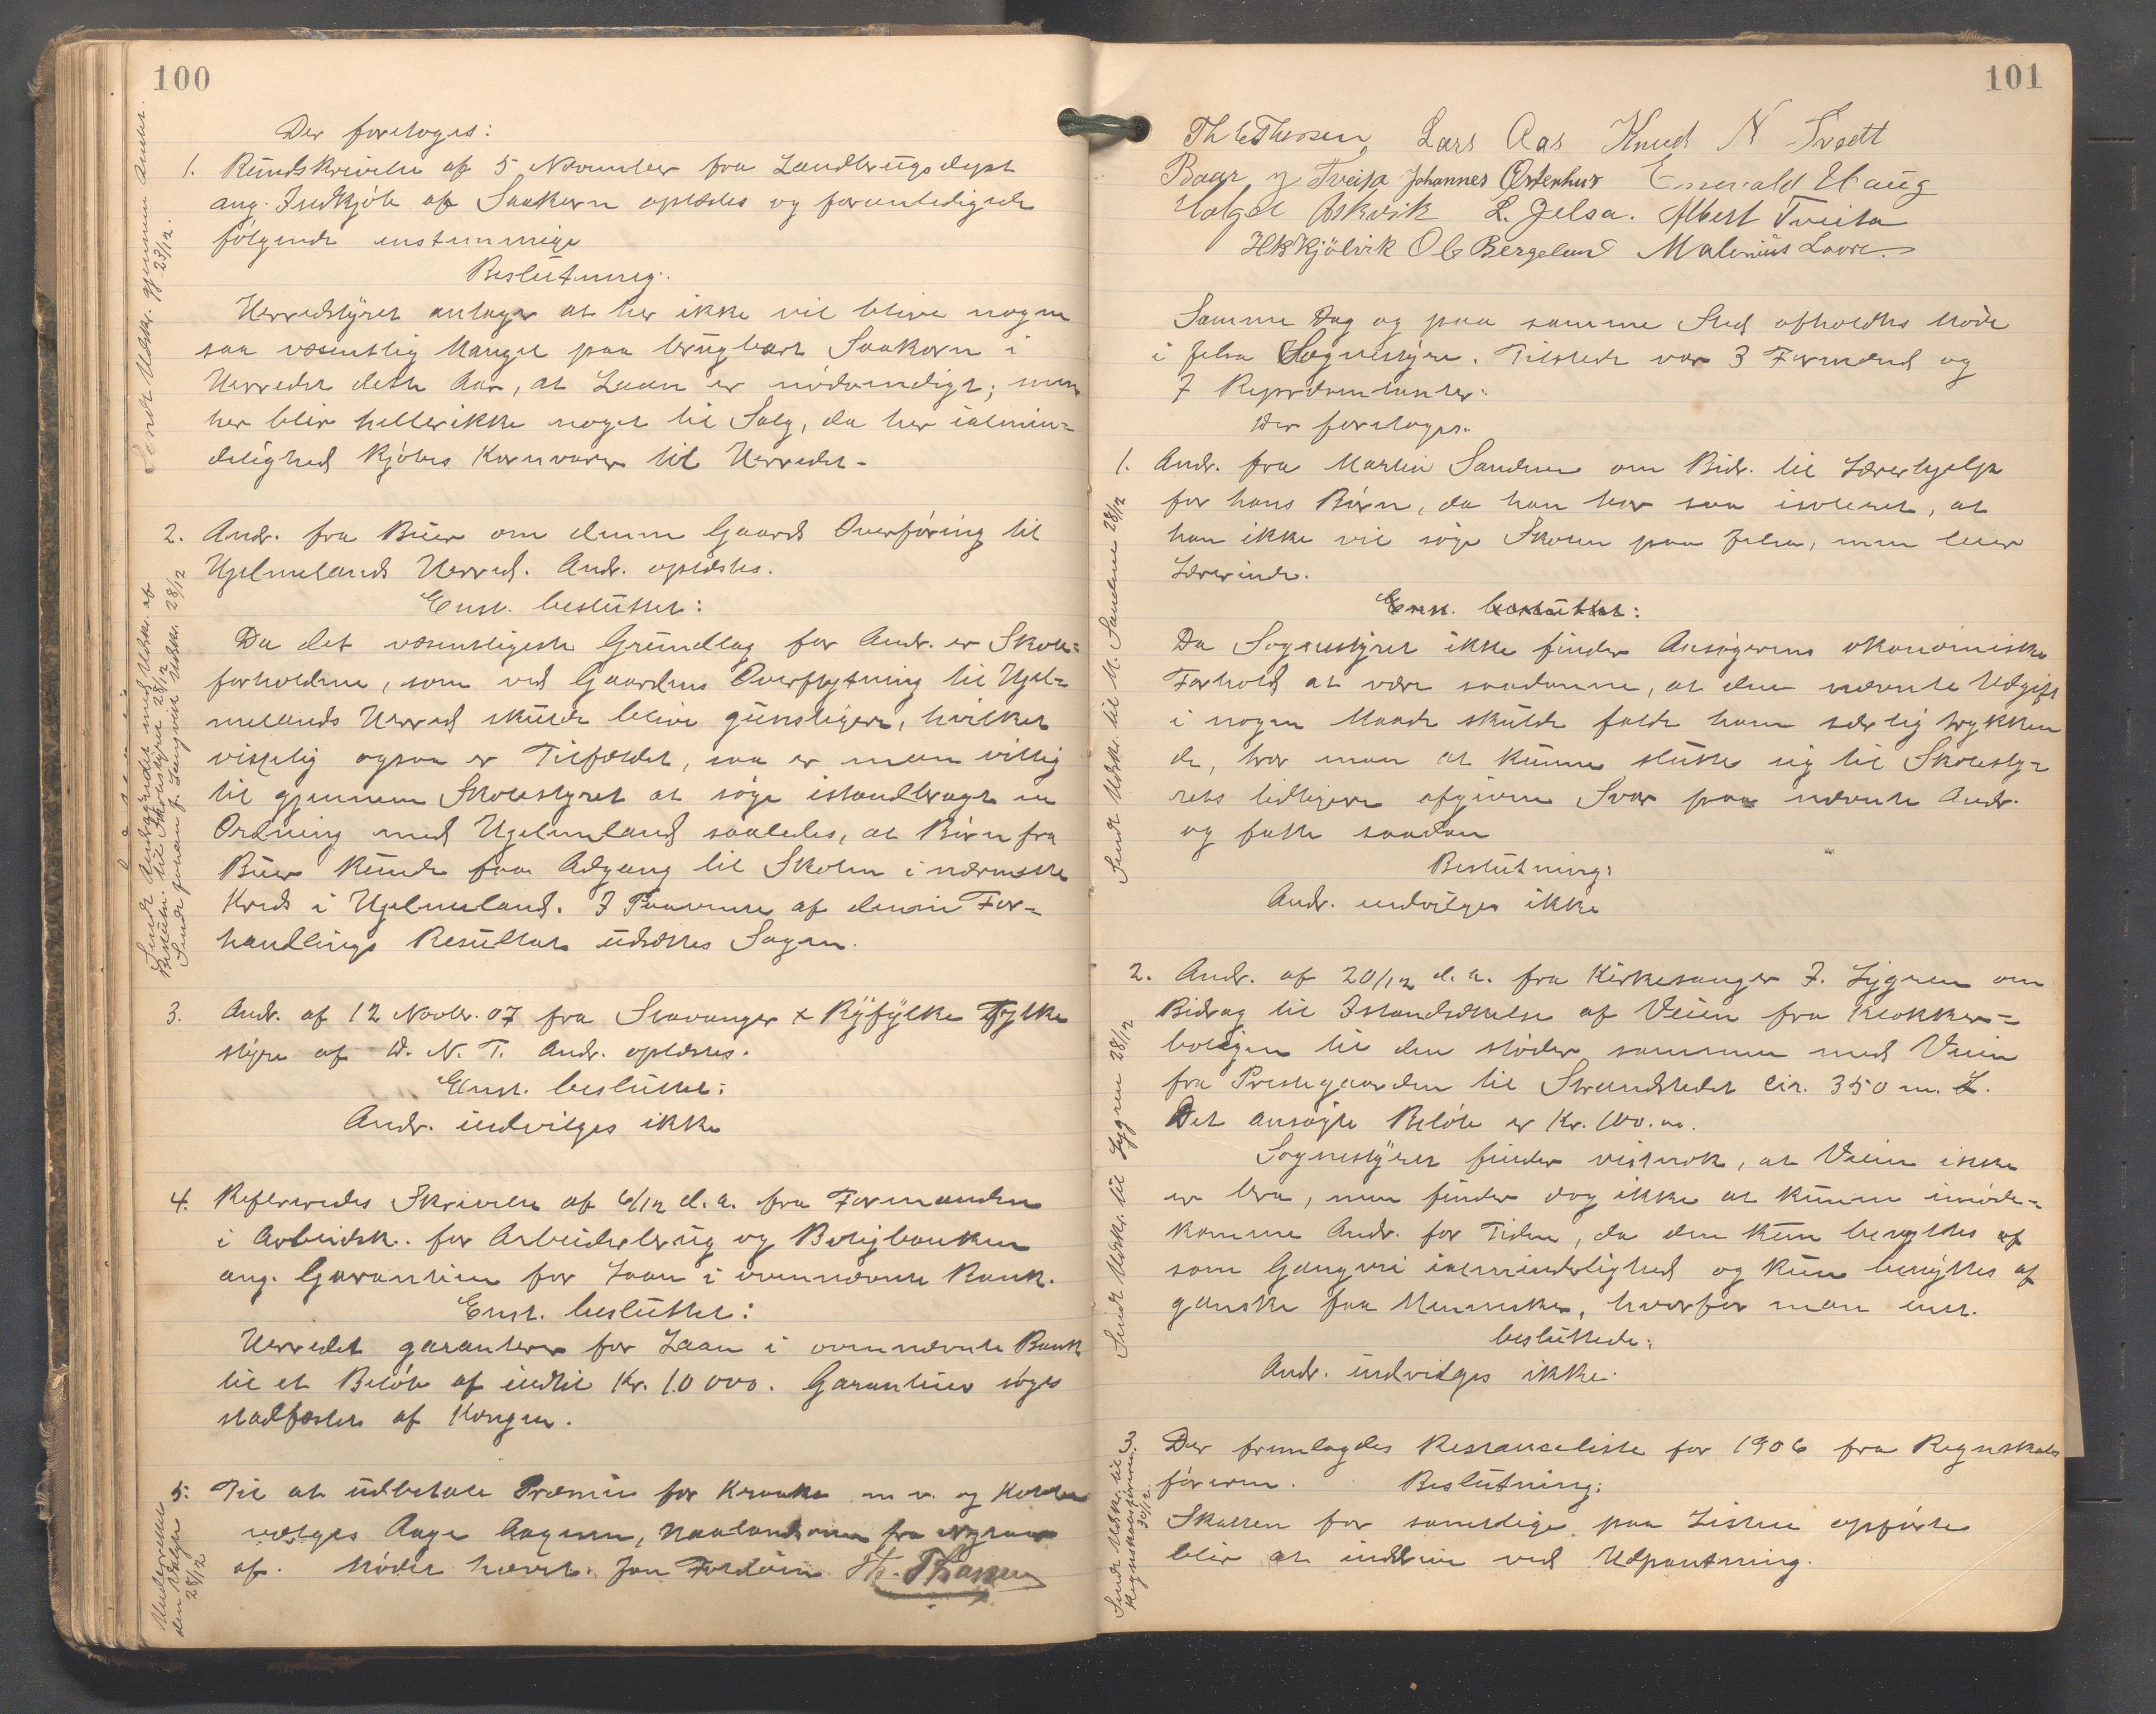 100
Der foretoges:
1. Rundskrivelse af 5 November fra Landbrugsdept
ang. Indkjøb af Saakorn oplæstes og foranledigede
følgende enstemmige
Beslutning:
Herredstyret antager at her ikke vil blive nogen
saa væsentlig Mangel paa brugbart Saakorn i
Herredet dette Aar, at Laan er nødvendigt; men
her blir hellerikke noget til Salg, da her ialmin=
delighed kjøbes Kornvarer til Herredet.
Sendt Udskr. gjennem Amtet.
23/12.
2. Andr. fra Buer om denne Gaards Overføring til
Hjelmelands Herred. Andr. oplæstes.
Enst. besluttet:
Da det væsentligste Grundlag for Andr. er Skole=
forholdene, som ved Gaardens Overflytning til Hjel=
melands Herred skulde blive gunstigere, hvilket
visselig ogsaa er Tilfældet, saa er man villig
til gjennem Skolestyret at søge istandbragt en
Ordning med Hjelmeland saaledes, at Børn fra
Buer kunde faa Adgang til Skolen i nærmeste
Kreds i Hjelmeland. I Paavente af denne For=
handlings Resultat udsættes Sagen.
Sendt Andragendet med Udskr. af
Beslutn. til Skolestyret 28/12
28/12
3. Andr. af 12 Novbr. 07 fra Stavanger & Ryfylke Fylke
styre af D. N. T. Andr. oplæstes.
Enst. besluttet:
Andr. indvilges ikke
4. Refereredes Skrivelse af 6/12 d. a. fra Formanden
i Arbeidsk. for Arbeiderbrug og Boligbanken
ang. Garantien for Laan i ovennævnte Bank.
Enst. besluttet:
Herredet garanterer for Laan i ovennævnte Bank
til et Beløb af indtil Kr. 10 000. Garantien søges
stadfæstet af Kongen.
5. Til at udbetale Præmie for Kraake m. v. og
vælges Aage
af. Mødet hævet. Th. Thorsen
Underrettet
den Valgte
28/12
101
Th Thorsen, Lars Aas Knud N Tvedt
Baar J Tveita Johannes Østenhus Enevald Haug
Halgel Askvik L. Jelsa. Albert Tveita
HKKjølvik O B Bergeland Malenius Lovre.
Samme Dag og paa samme Sted afholdtes Møde
i Jelsa Sognestyre. Tilstede var 3 Formænd og
7 Repræsentanter.
Der foretoges.
1. Andr. fra Martin Sandene om Bidr. til Lærerhjelp
for hans Børn, da han bor saa isoleret, at
han ikke vil søge Skolen paa Jelsa, men leier
Lærerinde.
Enst. besluttet:
Da Sognestyret ikke finder Ansøgerens økonomiske
Forhold at være saadanne, at den nævnte Udgift
i nogen Maade skulde falde ham særlig trykken
de, tror man at kunne slutte sig til Skolesty=
rets tidligere afgivne Svar paa nævnte Andr.
og fatte saadan
Beslutning:
Andr. indvilges ikke
Sendt Udskr. til M. Sandene 28/12
2. Andr. af 20/12 d. a. fra Kirkesanger J. Lygren om
Bidrag til Istandsættelse af Veien fra Klokker=
boligen til den støder sammen med Veien
fra Prestegaarden til Strandstedet cir. 350 m. L.
Det ansøgte Beløb er Kr. 100.00.
Sognestyret finder vistnok, at Veien ikke
er bra, men finder dog ikke at kunne imøde=
komme Andr. for Tiden, da den kun benyttes af
som Gangvei ialmindelighed og kun benyttes af
ganske faa Mennesker, hvorfor man enst.
besluttede:
Andr. indvilges ikke.
Sendt Udskr. til Lygren 28/12
3 Der fremlagdes Restanceliste for 1906 fra Regnskabs
føreren. Beslutning:
Skatten for samtlige paa Listen opførte
blir at inddrive ved Udpantning.
Sendt Udskr. til
Regnskabsføreren.
30/12.